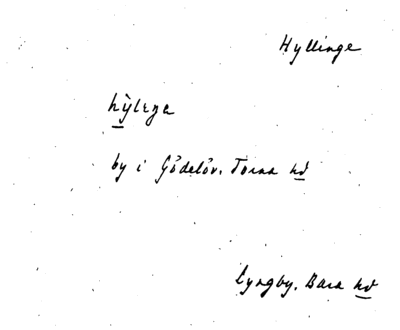 Hyllinge
hỳlɛŋa
by i Gödelöv. Torna hd
Lyngby, Bara hd